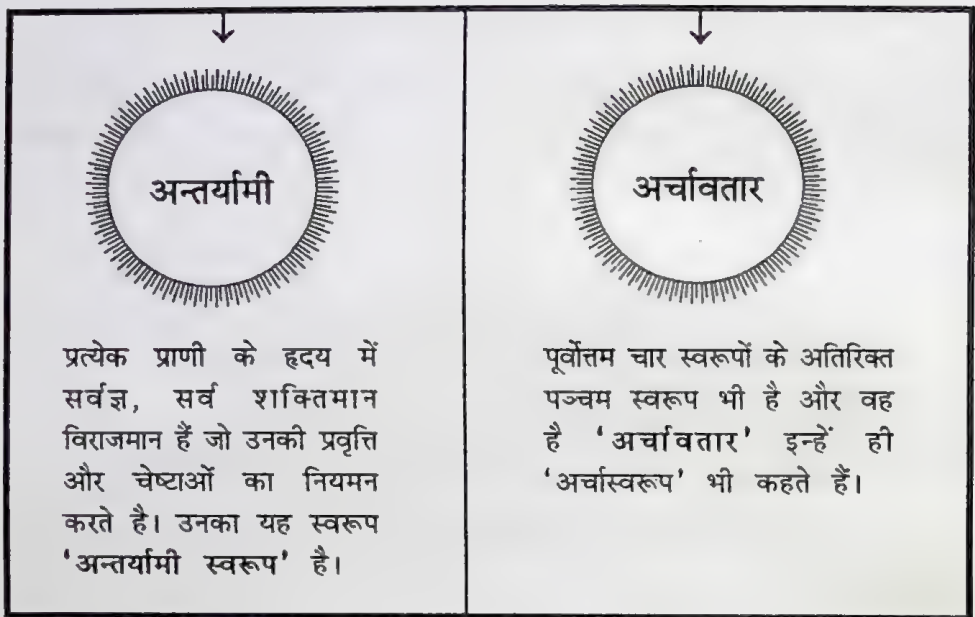 अन्तर्यामी
प्रत्येक प्राणी के हृदय में
सर्वज्ञ, सर्व शक्तिमान
विराजमान हैं जो उनकी प्रवृत्ति
और चेष्टाओं का नियमन
करते है। उनका यह स्वरूप
'अन्तर्यामी स्वरूप' है।
अर्चावतार
पूर्वोत्तम चार स्वरूपों के अतिरिक्त
पञ्चम स्वरूप भी है और वह
है 'अर्चावतार' इन्हें ही
'अर्चास्वरूप' भी कहते हैं।